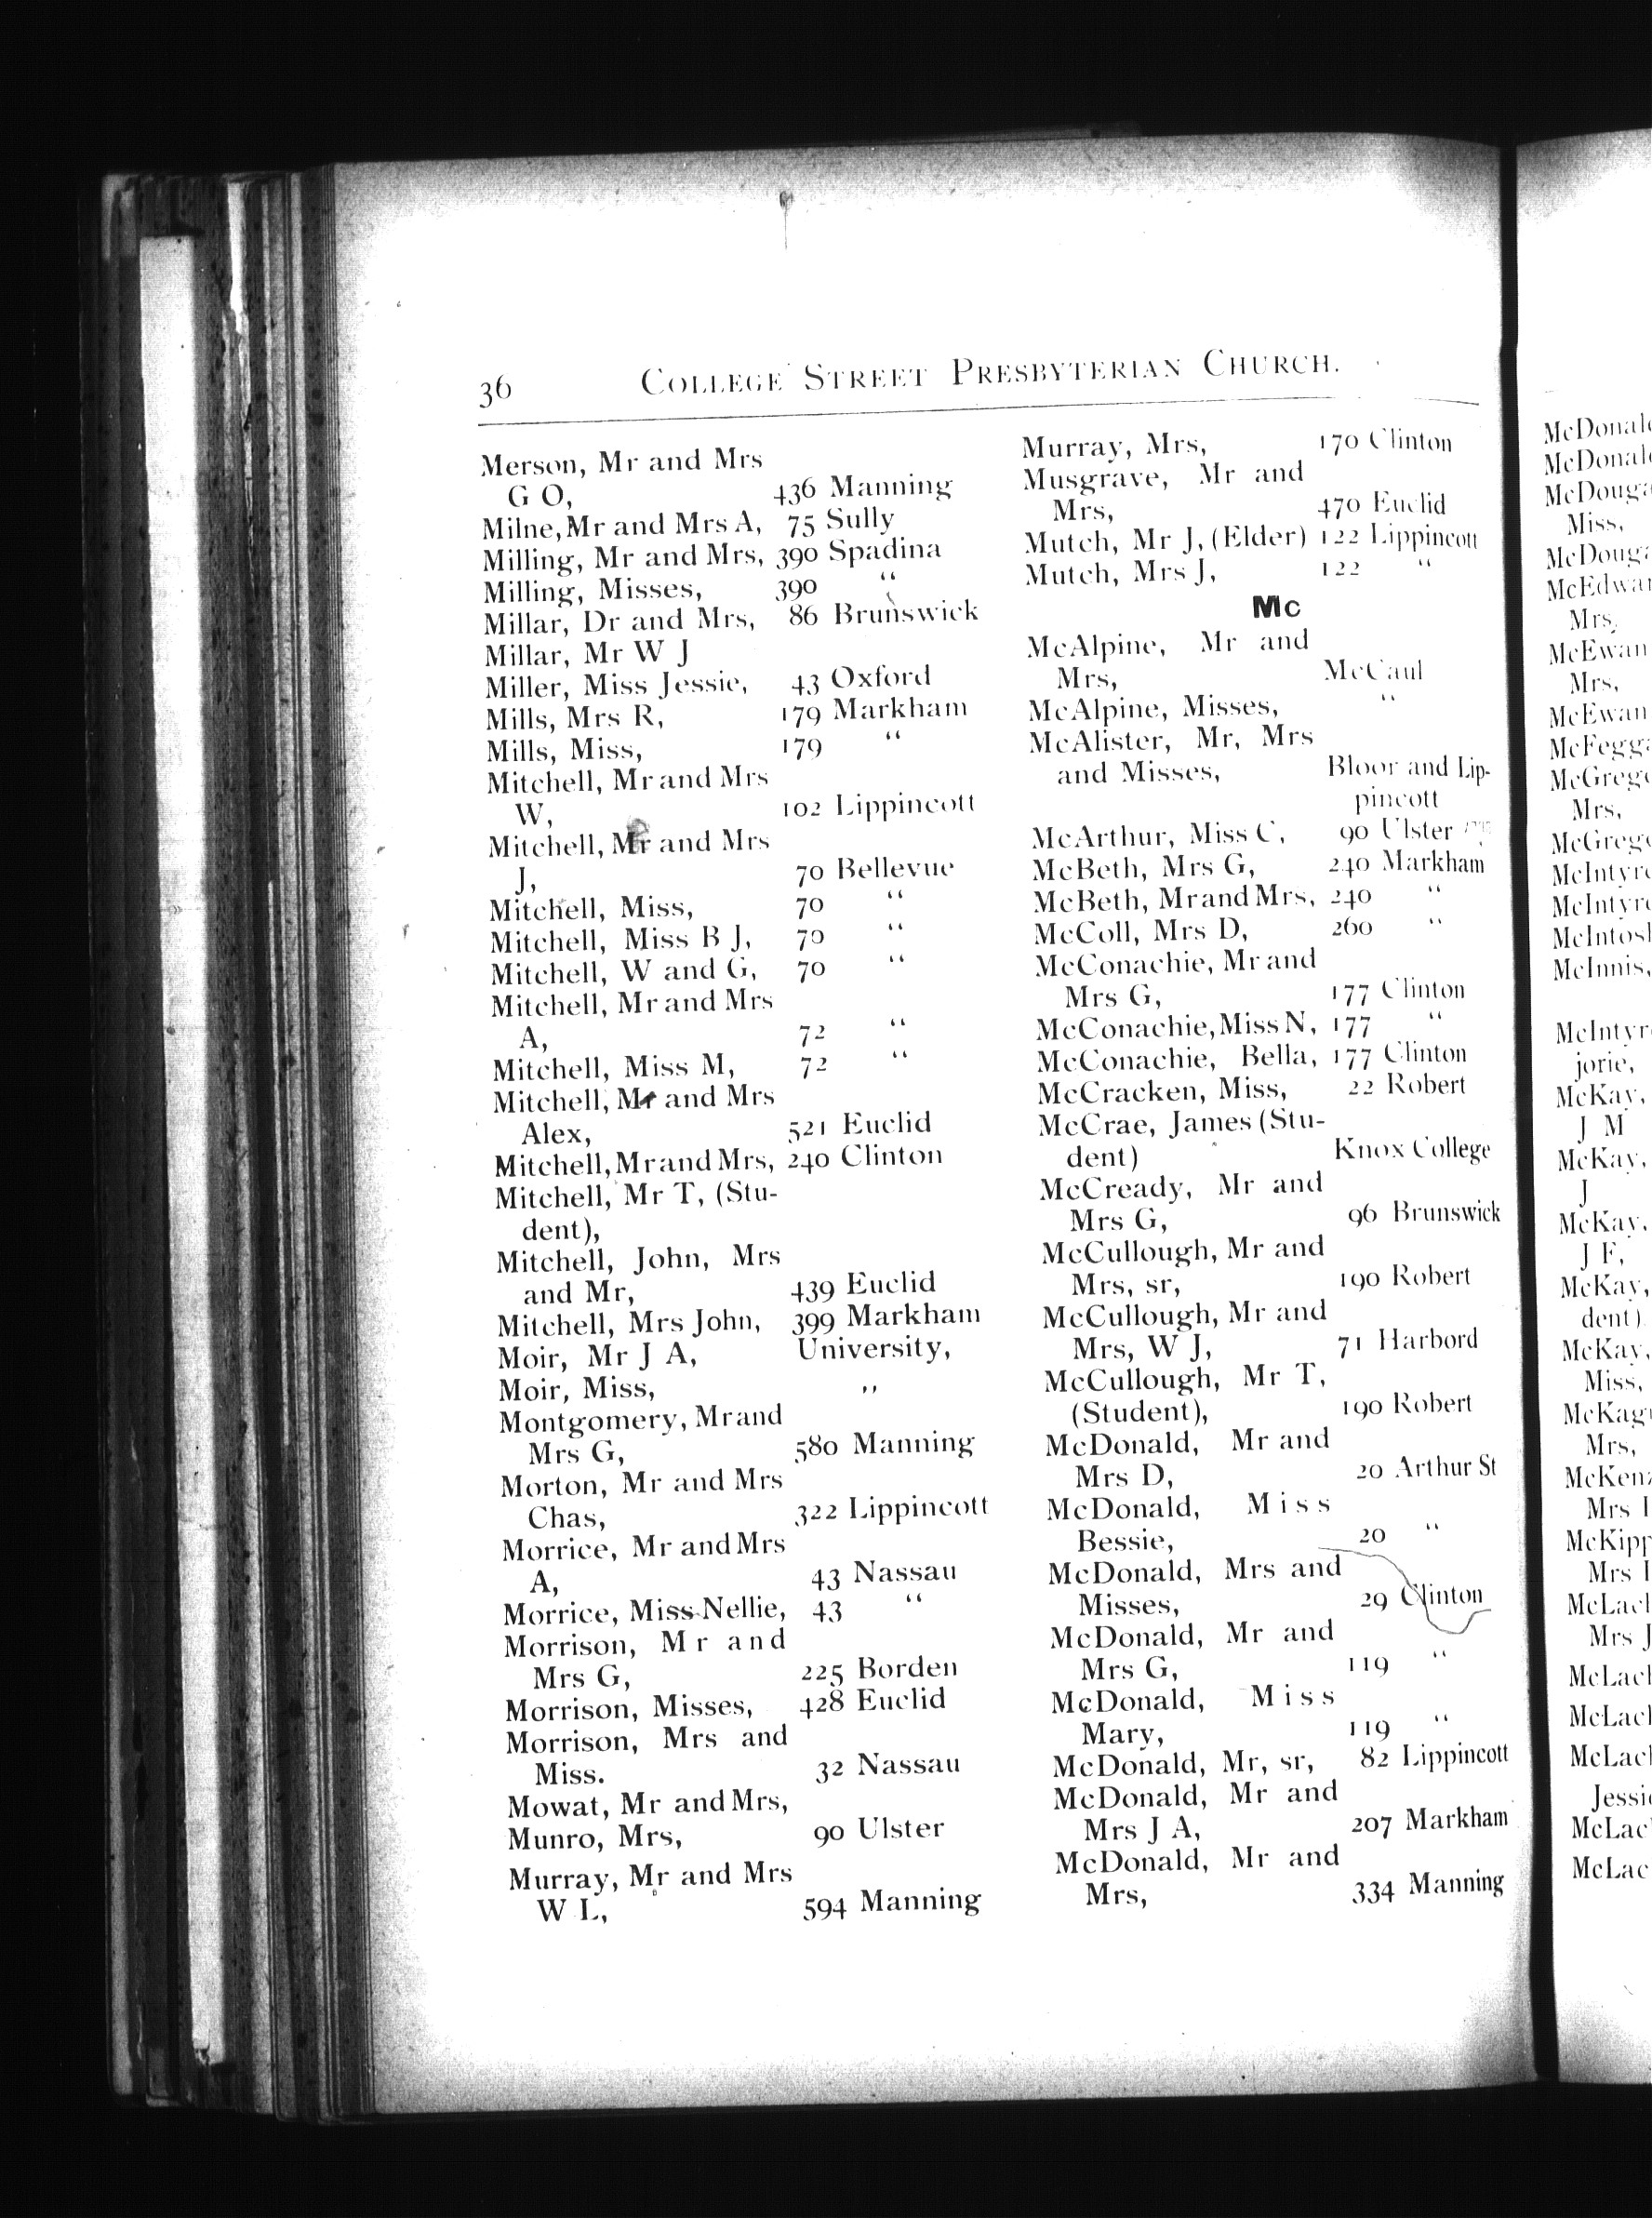 36 COLLEGE STREET PRESBYTERIAN CHURCH.
Merson, Mr and Mrs
G O, 436 Manning
Milne, Mr and Mrs A, 75 Sully
Milling, Mr and Mrs, 390 Spadina
Milling, Misses, 390 "
Millar, Dr and Mrs, 86 Brunswick
Millar, Mr W J
Miller, Miss Jessie, 43 Oxford
Mills, Mrs R, 179 Markham
Mills, Miss, 179 "
Mitchell, Mr and Mrs
W, 102 Lippincott
Mitchell, Mr and Mrs
J, 70 Bellevue
Mitchell, Miss, 70 "
Mitchell, Miss B J, 70 "
Mitchell, W and G, 70 "
Mitchell, Mr and Mrs
A, 72 "
Mitchell, Miss M, 72 "
Mitchell, Mr and Mrs
Alex, 521 Euclid
Mitchell, Mr and Mrs, 240 Clinton
Mitchell, Mr T, (Stu-
dent),
Mitchell, John, Mrs
and Mr, 439 Euclid
Mitchell, Mrs John, 399 Markham
Moir, Mr J A, University,
Moir, Miss, "
Montgomery, Mr and
Mrs G, 580 Manning
Morton, Mr and Mrs
Chas, 322 Lippincott
Morrice, Mr and Mrs
A, 43 Nassau
Morrice, Miss Nellie, 43 "
Morrison, Mr and
Mrs G, 225 Borden
Morrison, Misses, 428 Euclid
Morrison, Mrs and
Miss. 32 Nassau
Mowat, Mr and Mrs,
Munro, Mrs, 90 Ulster
Murray, Mr and Mrs
W L, 594 Manning
Murray, Mrs, 170 Clinton
Musgrave, Mr and
Mrs, 470 Euclid
Mutch, Mr J, (Elder) 122 Lippincott
Mutch, Mrs J, 122 "
Mc
McAlpine, Mr and
Mrs, McCaul
McAlpine, Misses, "
McAlister, Mr, Mrs
and Misses, Bloor and Lip-
pincott
McArthur, Miss C, 90 Ulster
McBeth, Mrs G, 240 Markham
McBeth, Mr and Mrs, 240 "
McColl, Mrs D, 260 "
McConachie, Mr and
Mrs G, 177 Clinton
McConachie, Miss N, 177 "
McConachie, Bella, 177 Clinton
McCracken, Miss, 22 Robert
McCrae, James (Stu-
dent) Knox College
McCready, Mr and
Mrs G, 96 Brunswick
McCullough, Mr and
Mrs, sr, 190 Robert
McCullough, Mr and
Mrs, W J, 71 Harbord
McCullough, Mr T,
(Student), 190 Robert
McDonald, Mr and
Mrs D, 20 Arthur St
McDonald, Miss
Bessie, 20 "
McDonald, Mrs and
Misses, 29 Clinton
McDonald, Mr and
Mrs G, 119 "
McDonald, Miss
Mary, 119 "
McDonald, Mr, sr, 82 Lippincott
McDonald, Mr and
Mrs J A, 207 Markham
McDonald, Mr and
Mrs, 334 Manning
Miss,
Mrs,
McEwan
Mrs,
McEwan
Mrs,
McInnis,
jorie,
McKay,
J M
McKay,
J
McKay,
J F,
McKay,
dent)
McKay,
Miss,
Mrs,